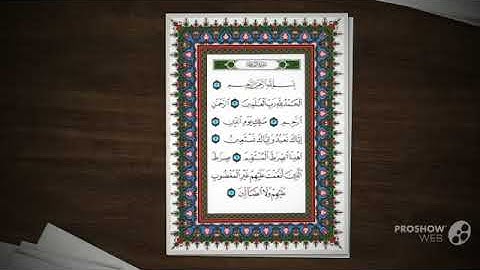 سورة الفاتحة
بِسْمِ اللَّهِ الرَّحْمَٰنِ الرَّحِيمِ ١
الْحَمْدُ لِلَّهِ رَبِّ الْعَالَمِينَ ٢ الرَّحْمَٰنِ
الرَّحِيمِ ٣ مَالِكِ يَوْمِ الدِّينِ ٤
إِيَّاكَ نَعْبُدُ وَإِيَّاكَ نَسْتَعِينُ ٥
اهْدِنَا الصِّرَاطَ الْمُسْتَقِيمَ ٦ صِرَاطَ
الَّذِينَ أَنْعَمْتَ عَلَيْهِمْ غَيْرِ الْمَغْضُوبِ
عَلَيْهِمْ وَلَا الضَّالِّينَ ٧
PROSHOW
WEB